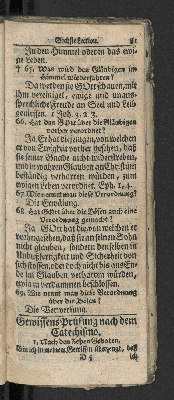 Sechste Lection. 81
In den Himmel oder in das ewi-
ge Leben.
† 65. Was wird des Gläubigen im
Himmel wiederfahren?
Da werden sie GOtt schauen, mit
ihm vereiniget, ewige und unaus-
sprechliche Freude an Seel und Leib
geniessen. 1 Joh. 3. 2. 3.
66. Hat dan GOtt über die Gläubigen
vorher verordnet?
Ja Er hat diejenigen, von welchen
er von Ewigkeit vorher gesehen, daß
sie seiner Gnade nicht widerstreben,
und im wahren Glauben an Christum
beständig verharren würden, zum
ewigen Leben verordnet. Eph. 1, 4.
67. Wie nennt man diese Verordnung?
Die Erwälung.
68. Hat GOtt über die Bösen auch eine
Verordnung gemacht?
Ja, GOtt hat die, von welchen er
vorhergesehen, daß sie an seinen Sohn
nicht glauben, sondern denselben in
Unbußfertigkeit und Sicherheit von
sich stossen, oder doch nicht bis ans En-
de im Glauben verharren würden,
ewig zu verdammen beschlossen.
69. Wie nennt man diese Verordnung
über die Bösen?
Die Verwerfung.
Gewissens-Prüfung nach dem
Catechismo.
1. Nach den Zehen Geboten.
Bin ich in meinem Gewissen überzeugt, daß
D 5 ich